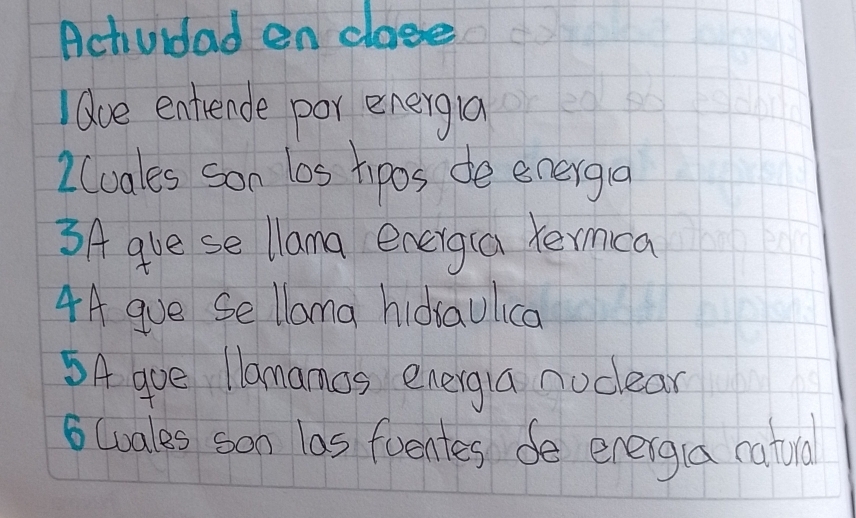 Actividad en clase
1 Que entiende por energia
2 Cuales son los tipos de energia
3 A que se llama energia termica
4 A que se llama hidraulica
5 A que llamamos energia nuclear
6 Cuales son las fuentes de energia natural